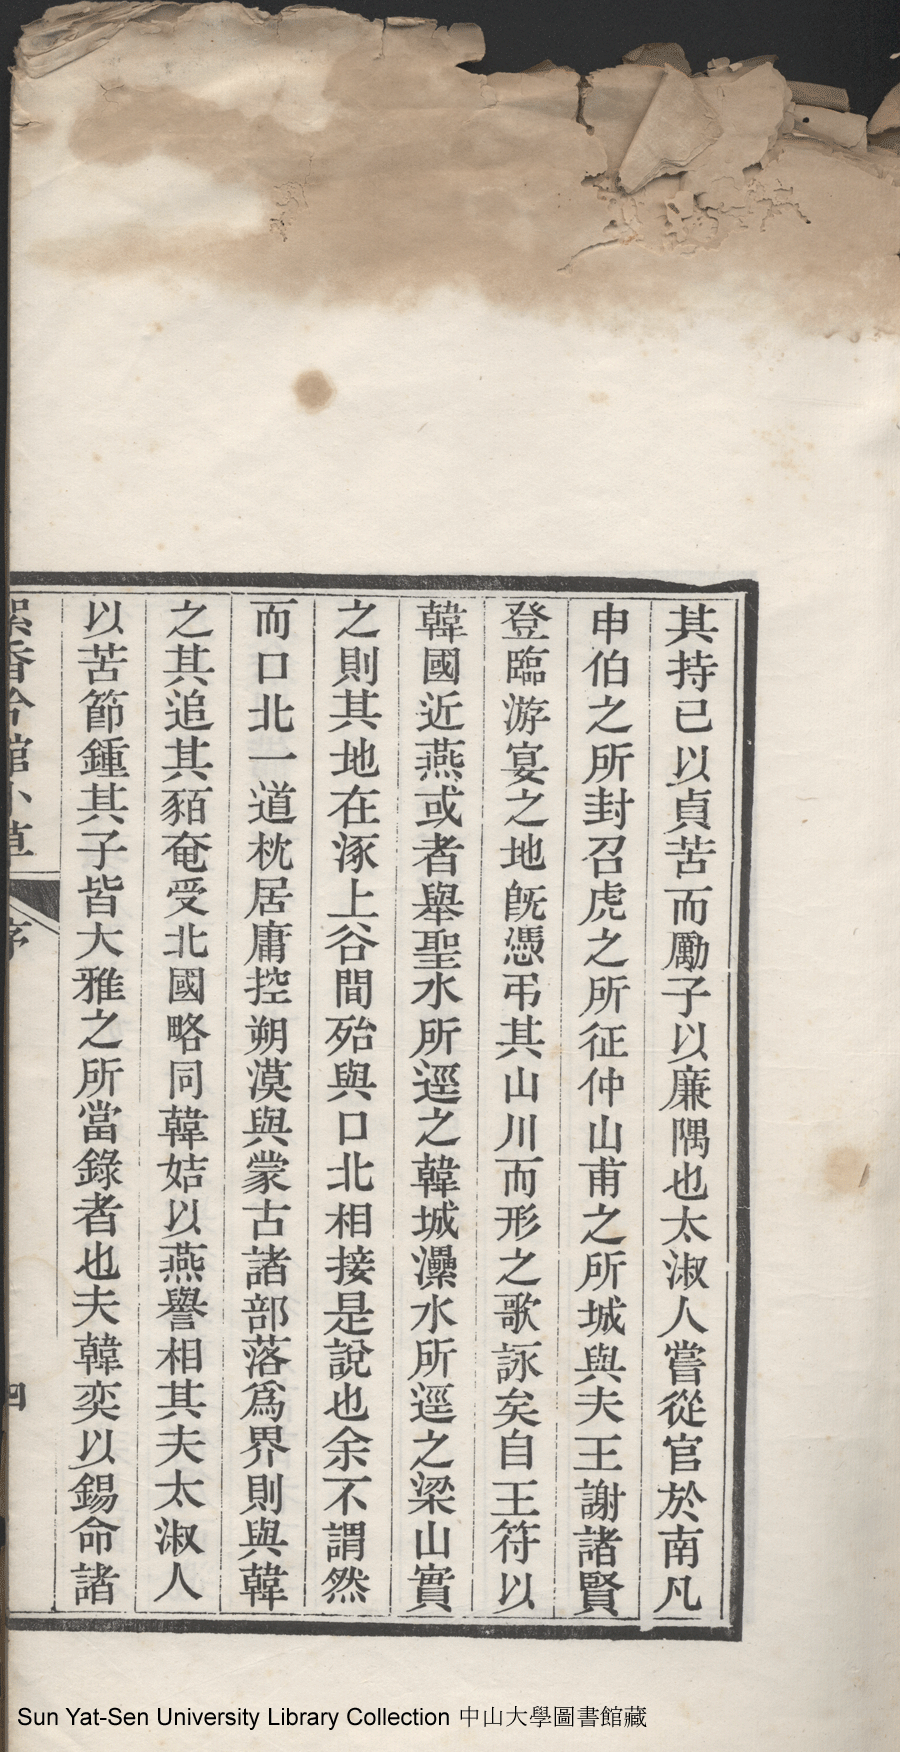 其持己以貞苦而勵子以廉隅也太淑人嘗從官於南凡
申伯之所封召虎之所征仲山甫之所城與夫王謝諸賢
登臨游宴之地旣憑弔其山川而形之歌詠矣自王符以
韓國近燕或者舉聖水所逕之韓城灅水所逕之梁山實
之則其地在涿上谷間殆與口北相接是說也余不謂然
而口北一道枕居庸控朔漠與蒙古諸部落爲界則與韓
之其追其貊奄受北國略同韓姞以燕譽相其夫太淑人
以苦節鍾其子皆大雅之所當錄者也夫韓奕以錫命諸
序
四
Sun Yat-Sen University Library Collection 中山大學圖書館藏